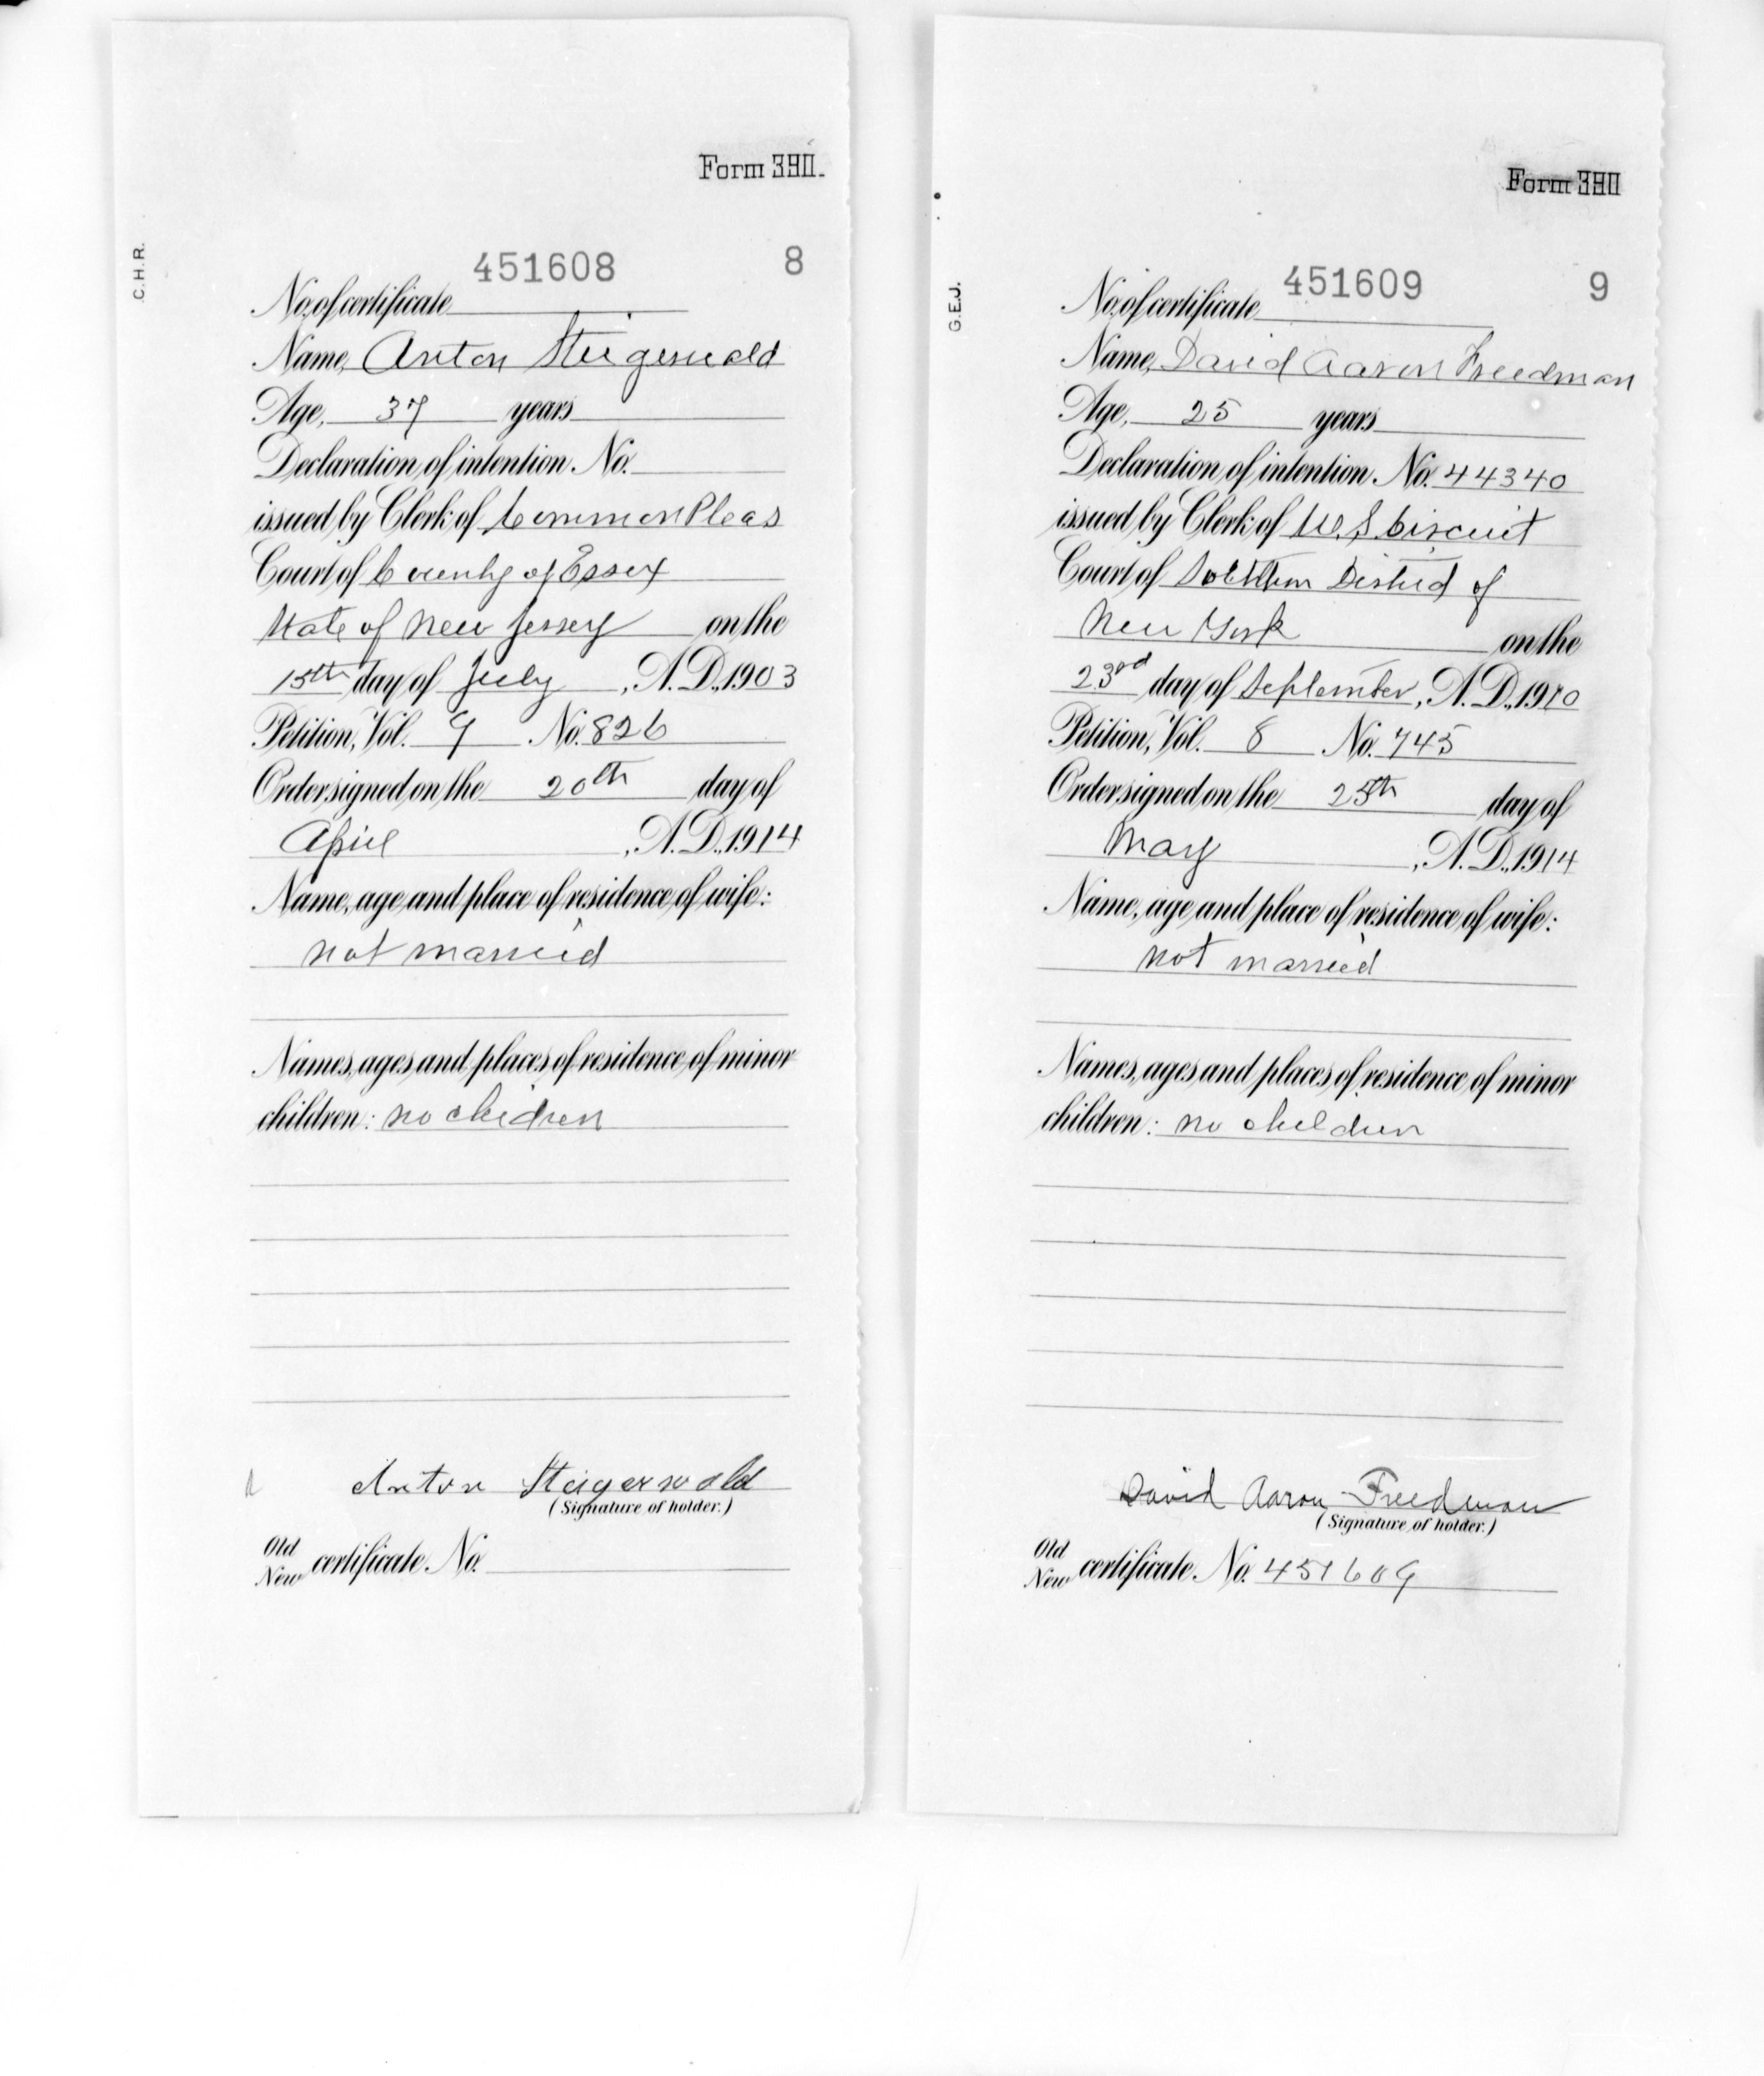 Form 390.
C.H.R.
451608 8
No. of certificate
Name, Anton Steigerwald
Age, 37 years
Declaration of intention No.
issued by Clerk of Common Pleas
Court of County of Essex
State of New Jersey on the
15th day of July, A.D. 1903
Petition, Vol. 9 No. 826
Order signed on the 20th day of
April, A.D. 1914
Name, age and place of residence of wife:
not married
Names, ages and places of residence of minor
children: no children
Anton Steigerwald
(Signature of holder.)
Old
New certificate No.
Form 390
G.E.J.
451609 9
No. of certificate
Name, David Aaron Freedman
Age, 25 years
Declaration of intention No. 44340
issued by Clerk of U.S. Circuit
Court of Southern District of
New York on the
23rd day of September, A.D. 1910
Petition, Vol. 8 No. 745
Order signed on the 25th day of
May, A.D. 1914
Name, age and place of residence of wife:
not married
Names, ages and places of residence of minor
children: no children
David Aaron Freedman
(Signature of holder.)
Old
New certificate No. 451609